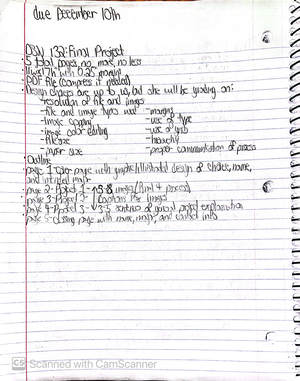 due December 10th
DSN 132: Final Project
- 5 total pages no more, no less
- 11 w x 17 h with 0.25 margins
- PDF File (compress if needed)
- Design choices are up to us, but she will be grading on:
- resolution of file and images
- file and image types used - margins
- image cropping - use of type
- image color editing - use of grids
- file size - hierarchy
- paper size - proper communication of process
Outline
- page 1- title page with graphic/illustrated design of choice, name,
and intended major
- page 2- Project 1 - 3-8 images (final & process)
- page 3- Project 2 captions for images
- page 4- Project 3 - 3-5 sentences of general project explanation
- page 5- closing page with name, major, and contact info
CS Scanned with CamScanner